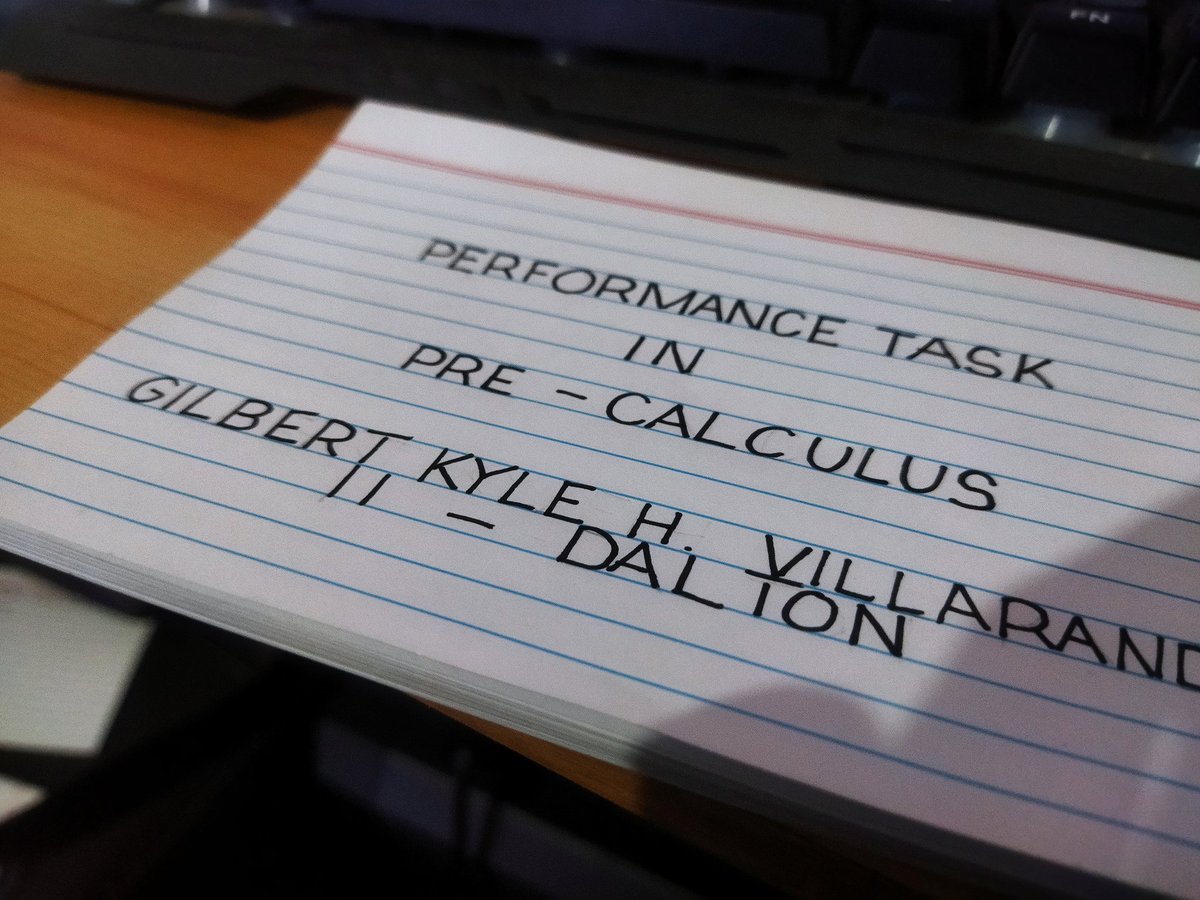 FN
PERFORMANCE TASK
IN
PRE - CALCULUS
GILBERT KYLE H. VILLARAND
11 - DALTON